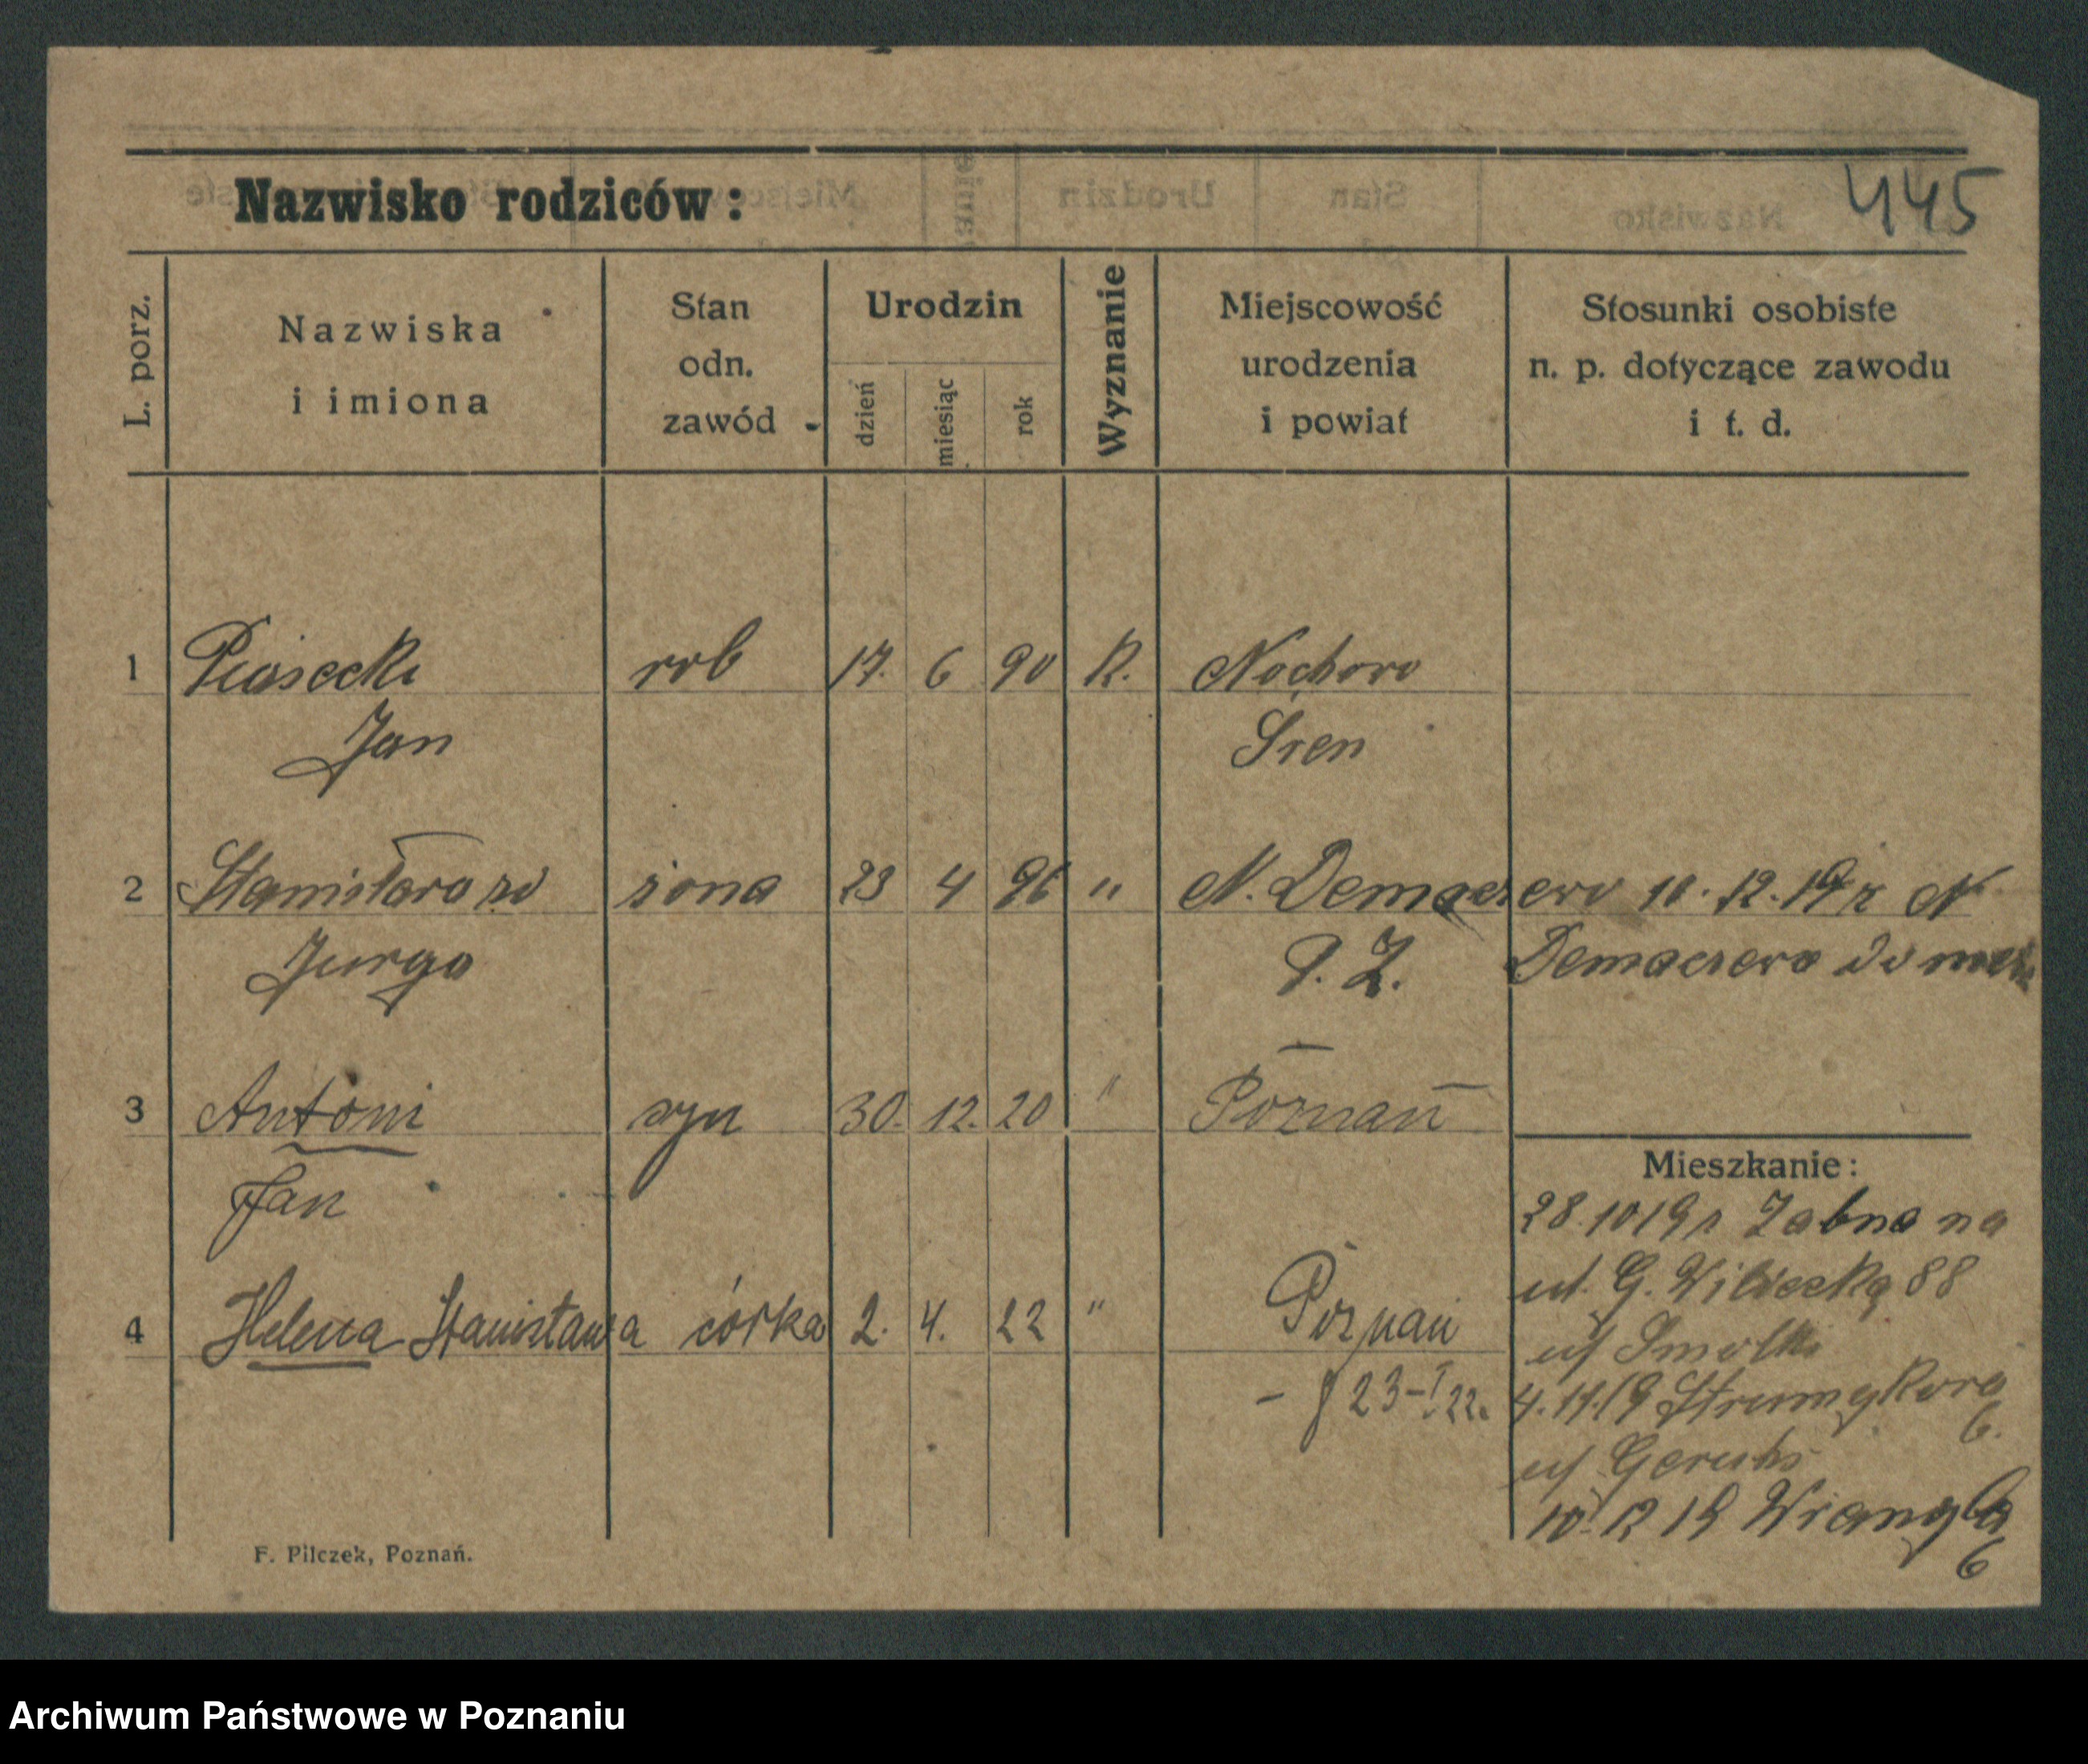 445
Nazwisko rodziców:
L. porz.
Nazwiska
i imiona
Stan
odn.
zawód
Urodzin
dzień
miesiąc
rok
Wyznanie
Miejscowość
urodzenia
i powiat
Stosunki osobiste
n. p. dotyczące zawodu
i t. d.
1 Piasecki rob 17. 6 90 R. Nochowo
Jan Śrem
2 Stanisława zd żona 23 4 96 " N. Demaczewo 10.12.19 r N
Jurga P. Z. Demaczewa do
3 Antoni syn 30. 12. 20 " Poznań
Jan
Mieszkanie:
28.10 19 r Żabna na
ul. G. Wildecką 88
4 Helena Stanisława córka 2. 4. 22 " Poznań
u/ Smolki
- 23-I 22.
4.11.19 Strumykowa
6.
u/
10.12 19
6
F. Pilczek, Poznań.
Archiwum Państwowe w Poznaniu